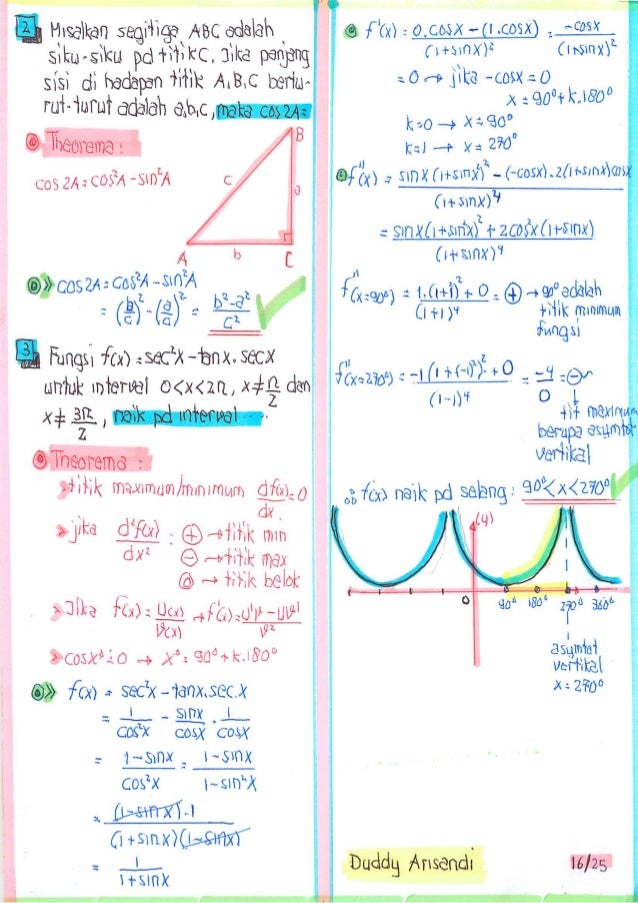 2 Misalkan segitiga ABC adalah
siku-siku pd titik C, Jika panjang
sisi di hadapan titik A,B,C bertu-
rut-turut adalah a,b,c, maka cos 2A =
Theorema:
cos 2A = cos²A - sin²A
B
c
a
A
b
C
cos 2A = cos²A - sin²A
= (b/c)² - (a/c)² = b²-a² / c²
3 Fungsi f(x) = sec²x - tanx. secx
untuk interval 0<x<2π, x≠π/2 dan
x≠ 3π/2, naik pd interval ...
Theorema:
titik maximum/minimum df(x)/dx = 0
jika d²f(x)/dx² : + → titik min
- → titik max
0 → titik belok
Jika f(x) = U(x)/V(x) → f'(x) = U'V - UV' / V²
cos x° = 0 → x° = 90° + k.180°
f(x) = sec²x - tanx. sec.x
= 1/cos²x - sinx/cosx . 1/cosx
= 1-sinx / cos²x = 1-sinx / 1-sin²x
= (1-sinx).1 / (1+sinx)(1-sinx)
= 1 / 1+sinx
f'(x) = 0.cosx - (1.cosx) / (1+sinx)² = -cosx / (1+sinx)²
= 0 → jika -cosx = 0
x = 90° + k.180°
k=0 → x = 90°
k=1 → x = 270°
f''(x) = sinx (1+sinx)² - (-cosx).2(1+sinx)cosx / (1+sinx)⁴
= sinx(1+sinx)² + 2cos²x(1+sinx) / (1+sinx)⁴
f''(x=90°) = 1.(1+1)² + 0 / (1+1)⁴ = + → 90° adalah
titik minimum
fungsi
f''(x=270°) = -1(1+(-1)²)² + 0 / (1-1)⁴ = -4/0 = -
↓
tit maximum
berupa asymtot
vertikal
∴ f(x) naik pd selang: 90°<x<270°
(y)
0 90° 180° 270° 360°
asymtot
vertikal
x = 270°
Duddy Arisandi 16/25